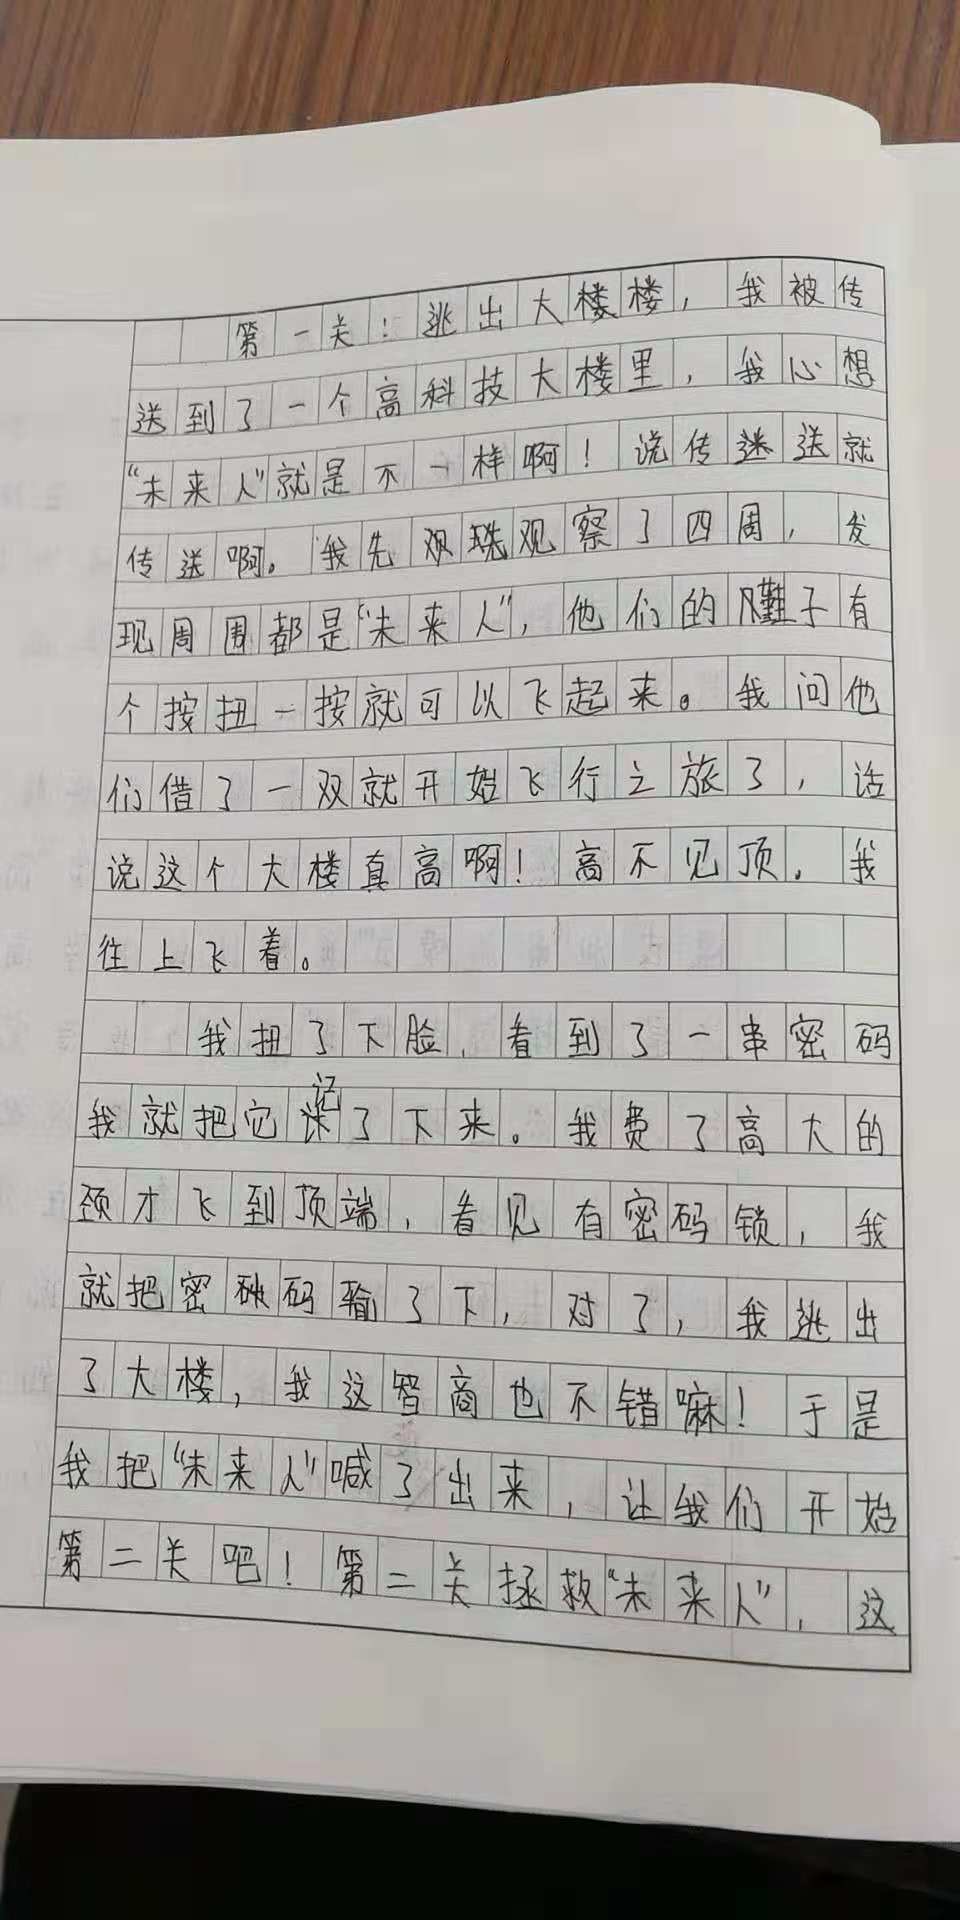 第一关!逃出大楼楼,我被传
送到了一个高科技大楼里,我心想
“未来人”就是不一样啊!说传迷送就
传送啊。我先观珗观察了四周,发
现周围都是“未来人”,他们的鞋子有
个按扭一按就可以飞起来。我问他
们借了一双就开始飞行之旅了,话
说这个大楼真高啊!高不见顶。我
往上飞着。
我扭了下脸,看到了一串密码
我就把它记了下来。我费了高大的
颈才飞到顶端,看见有密码锁,我
就把密码输了下,对了,我逃出
了大楼,我这智商也不错嘛!于是
我把“未来人”喊了出来,让我们开始
第二关吧!第二关拯救“未来人”,这